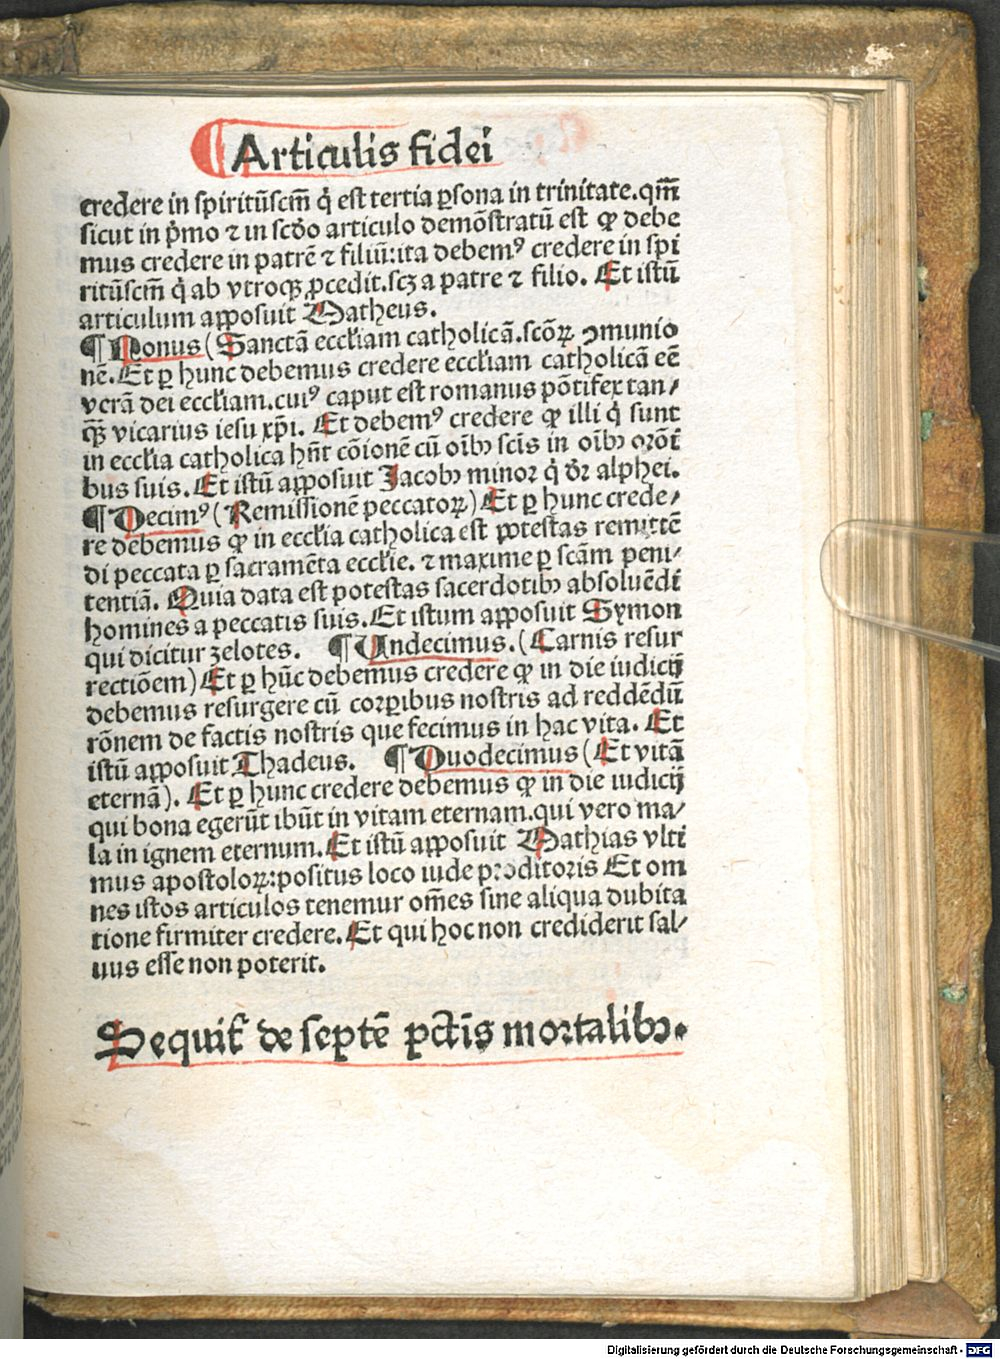 Articulis fidei
credere in spiritūscm̄ q̇ est tertia ꝑsona in trinitate.qm̄
sicut in pͥmo ⁊ in scḋo articulo demōstratū est ꝙ debe
mus credere in patrē ⁊ filiū:ita debemꝰ credere in spi
ritūscm̄ q̇ ab vtroqꝫ ꝓcedit.scꝫ a patre ⁊ filio. Et istū
articulum apposuit Matheus.
¶ Nonus (Sanctā eccl̓iam catholicā.scōꝝ ꝯmunio
nē.Et ꝑ hunc debemus credere eccl̓iam catholicā eē
verā dei eccl̓iam.cuiꝰ caput est romanus pōtifex tan/
qꝫ̄ vicarius iesu xp̄i. Et debemꝰ credere ꝙ illi q̇ sunt
in eccl̓ia catholica hn̄t cōionē cū oībꝫ scīs in oībꝫ orōi
bus suis. Et istū apposuit Jacobꝫ minor q̇ dr̄ alphei.
¶ Decimꝰ (Remissionē peccatoꝝ) Et ꝑ hunc crede/
re debemus ꝙ in eccl̓ia catholica est potestas remittē
di peccata ꝑ sacramēta eccl̓ie. ⁊ maxime ꝑ scām peni/
tentiā. Quia data est potestas sacerdotibꝫ absoluēdi
homines a peccatis suis. Et istum apposuit Symon
qui dicitur zelotes. ¶ Undecimus. (Carnis resur
rectiōem) Et ꝑ hūc debemus credere ꝙ in die iudicij
debemus resurgere cū corꝑibus nostris ad reddēdū
rōnem de factis nostris que fecimus in hac vita. Et
istū apposuit Thadeus. ¶ Duodecimus (Et vitā
eternā). Et ꝑ hunc credere debemus ꝙ in die iudicij
qui bona egerūt ibūt in vitam eternam.qui vero ma/
la in ignem eternum. Et istū apposuit Mathias vlti
mus apostoloꝝ:positus loco iude proditoris Et om
nes istos articulos tenemur om̄es sine aliqua dubita
tione firmiter credere. Et qui hoc non crediderit sal/
uus esse non poterit.
Sequit̉ de septē pctīs mortalibꝫ.
Digitalisierung gefördert durch die Deutsche Forschungsgemeinschaft - DFG